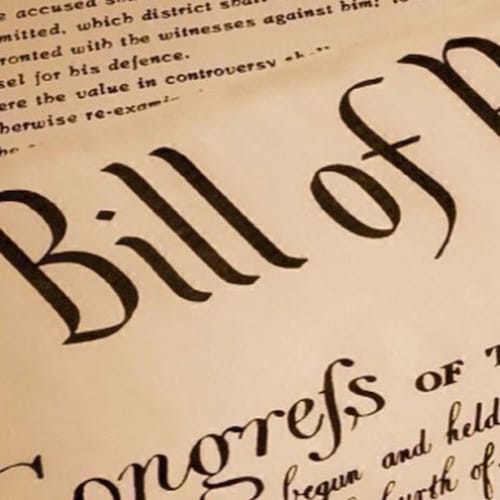 accused
mitted, which district
ronted with the witnesses against him;
sel for his defence.
ere the value in controversy
herwise re-exami
Bill of
Congreſs OF T
begun and held
ourth of